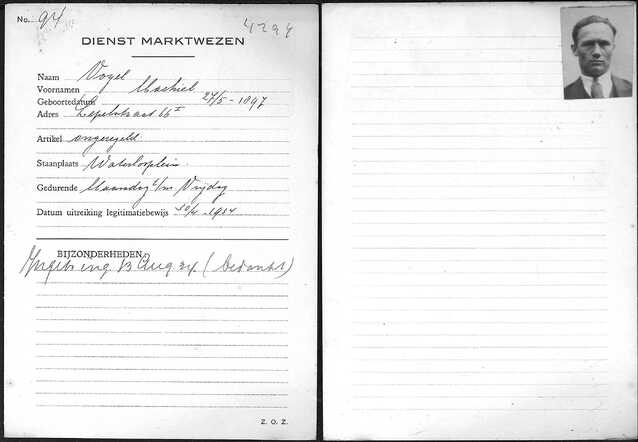 No. 94
4294
DIENST MARKTWEZEN
Naam Vogel
Voornamen Machiel
Geboortedatum 27/5 - 1897
Adres Lepelstraat 66 I
Artikel ongeregeld
Staanplaats Waterlooplein
Gedurende Maandag t/m Vrijdag
Datum uitreiking legitimatiebewijs 30/4 - 1934
BIJZONDERHEDEN
ing. 13 Aug 34 (bedankt)
Z. O. Z.